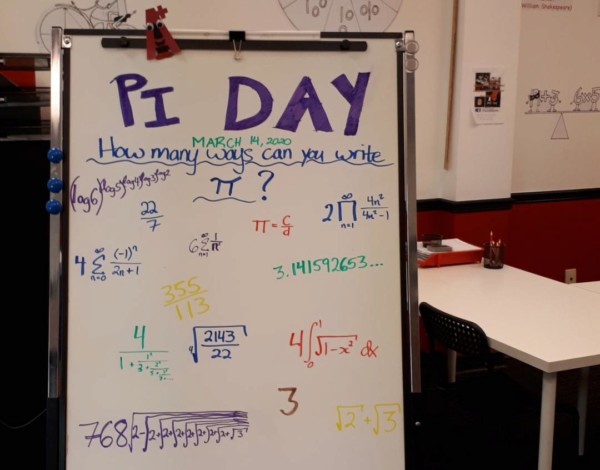 PI DAY
MARCH 14, 2020
How many ways can you write
π ?
(log6)^(log5)^(log4)^(log3)^(log2)
22/7
π = c/d
2 ∏ n=1 ∞ 4n²/(4n²-1)
4 ∑ n=0 ∞ (-1)ⁿ/(2n+1)
6 ∑ n=1 ∞
3.141592653...
355/113
4/(1+1²/(3+
∜(2143/22)
4 ∫₀¹ √(1-x²) dx
3
768√2-√2+√2+√2+√2+√2+√2+√2+√3
√2 + √3